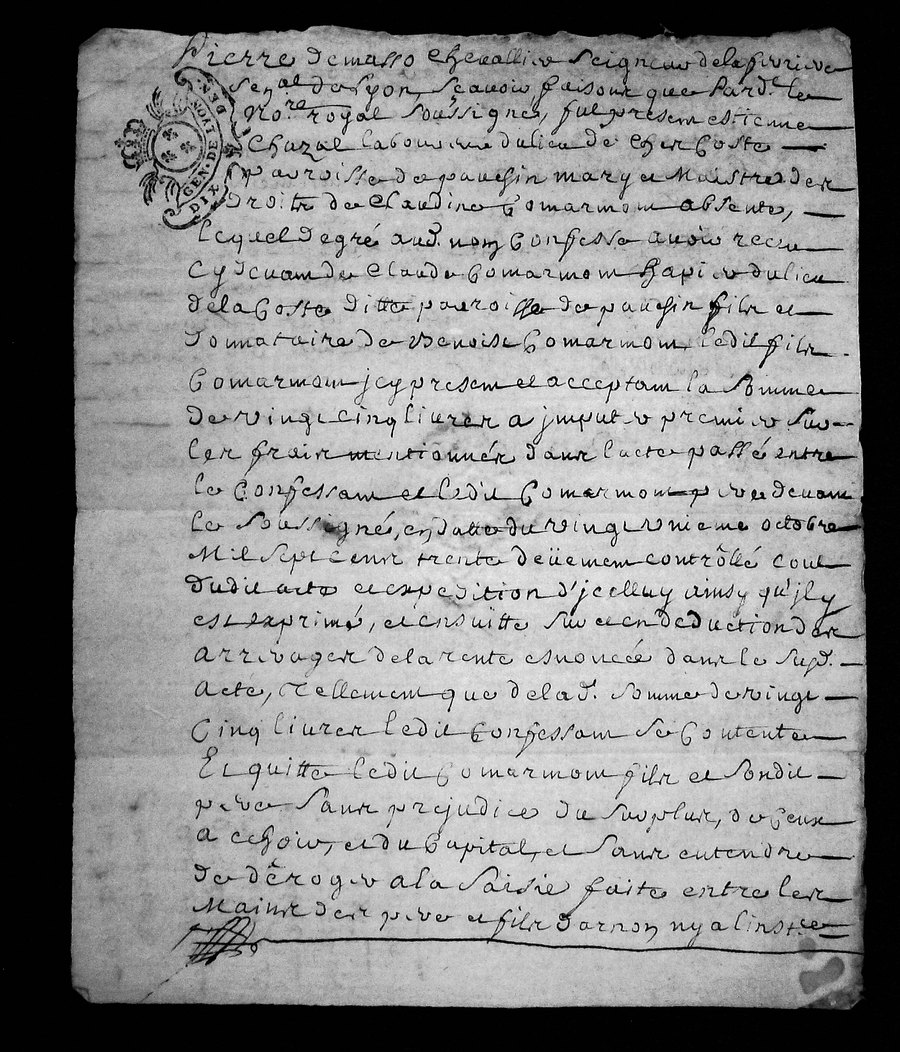 Pierre Demasso Chevallier Seigneur de la ferriere
Sen.al de Lyon, Scavoir faisons que Pard.t le
No.re royal Soussigné, fut present estienne
Chazal laboureur du lieu de Cher Coste
parroisse de pauesin mary et Maistre des
Droitz de Claudine Comarmom absente,
lequel degré aud. nom Confesse avoir receu
Cy devant de Claude Comarmom du lieu
de la Coste ditte parroisse de pauesin fils et
Donnataire de Benoist Comarmom, ledit fils
Comarmom jcy present et acceptam la Somme
de vingt cinq livres a jmputer premier sur
les frais mentionnés dans lacte passé entre
le Confessam et ledit Comarmom pere devam
le Soussigné, en datte du vingt unieme octobre
Mil Sept Cens trente deüement contrôllé cout
dudit acte et expedition d'jcelluy ainsy qu'jl y
est exprimé, et ensuitte sur et en deduction des
arrerages de la rente esnoncée dans le sud.
Acte, tellement que de lad. Somme de vingt
Cinq livres ledit Confessam se Contente
Et quitte ledit Comarmom fils et Sondit
pere Sans prejudice du Surplus, de Ceux
a echoir, et du Capital, et Sans entendre
de déroger a la Saisie faite entre les
Mains des pere et fils darnon ny a linst.ce
GEN. DE LYON
DIX DEN.